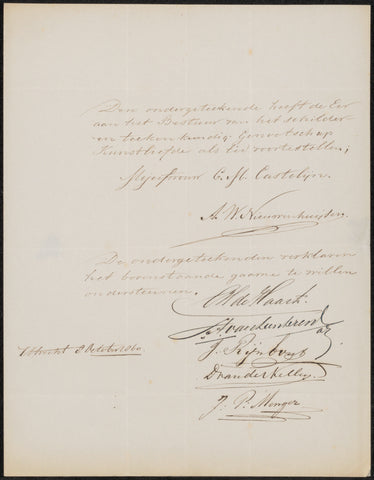 Den ondergeteekende heeft de Eer
aan het Bestuur van het schilder
en teekenkundig Genootschap
Kunstliefde als lid voortestellen;
Mejufvrouw C. M. Castelijn.
A. W. Nieuwenhuijzen
De ondergeteekenden verklaren
het bovenstaande gaarne te willen
ondersteunen.
de Haach
van Lunteren
Utrecht 8 October
J. Rijnbout
D van der Kellen
J. P. Menger